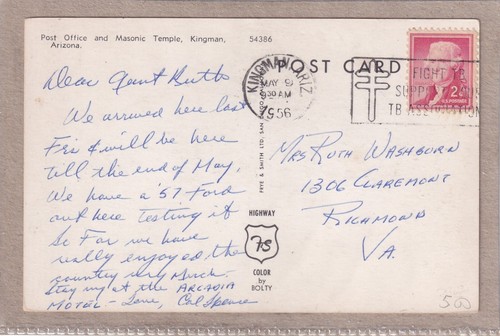 Post Office and Masonic Temple, Kingman,
Arizona.
54386
POST CARD
KINGMAN ARIZ
MAY 9
30 AM
1956
FIGHT TB
TB ASSOCIATION
2¢
U.S. POSTAGE
Dear Aunt Ruth
We arrived here last
Fri & will be here
till the end of May.
We have a '57 Ford
out here testing it
So Far we have
really enjoyed the
country very Much.
Stay ing at the ARCADIA
MOTEL - Love,
HIGHWAY
COLOR
by
BOLTY
Mrs Ruth Washburn
1306 Claremont
Richmond
Va.
50